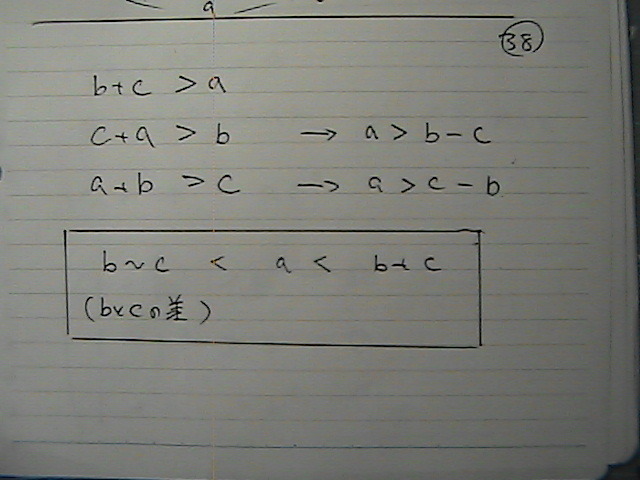 a
38
b+c > a
c+a > b → a > b-c
a+b > c → a > c-b
b~c < a < b+c
(bとcの差)